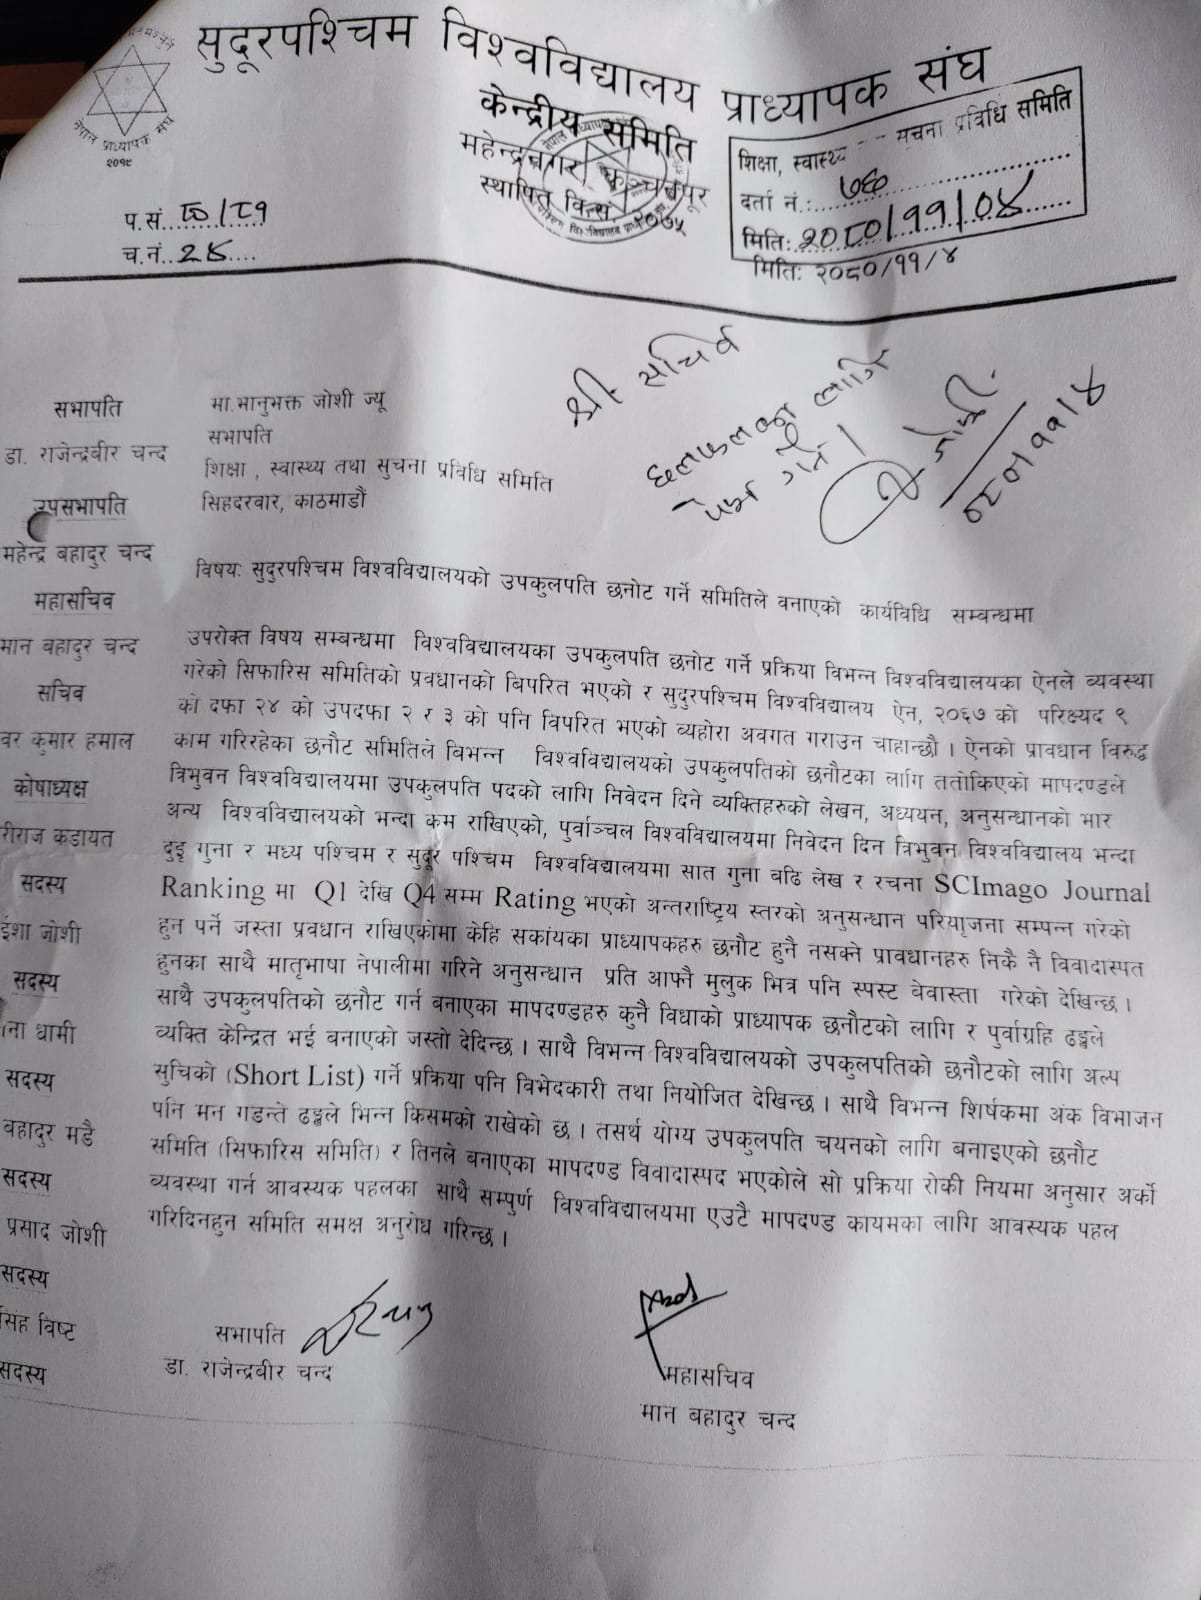 सुदूरपश्चिम विश्वविद्यालय प्राध्यापक संघ
केन्द्रीय समिति
महेन्द्रनगर कञ्चनपूर
स्थापित वि.सं. २०७५
नेपाल प्राध्यापक संघ
२०१९
शिक्षा, स्वास्थ्य सूचना प्रविधि समिति
दर्ता नं.: ७६०
मिति: २०८०/११/०४
प.सं. ८०/८१
च.नं. २४
मितिः २०८०/११/४
श्री सचिव
छलफलका लागि
पेश गर्ने।
जोशी
८०/११/४
सभापति
डा. राजेन्द्रबीर चन्द
उपसभापति
महेन्द्र बहादुर चन्द
महासचिव
मान बहादुर चन्द
सचिव
वर कुमार हमाल
कोषाध्यक्ष
रीराज कडायत
सदस्य
ईशा जोशी
सदस्य
ना धामी
सदस्य
बहादुर मडै
सदस्य
प्रसाद जोशी
सदस्य
सिंह विष्ट
सदस्य
मा.भानुभक्त जोशी ज्यू
सभापति
शिक्षा , स्वास्थ्य तथा सुचना प्रविधि समिति
सिहदरवार, काठमाडौं
विषय: सुदुरपश्चिम विश्वविद्यालयको उपकुलपति छनोट गर्ने समितिले वनाएको कार्यविधि सम्बन्धमा
उपरोक्त विषय सम्बन्धमा विश्वविद्यालयका उपकुलपति छनोट गर्ने प्रक्रिया विभन्न विश्वविद्यालयका ऐनले व्यवस्था
गरेको सिफारिस समितिको प्रवधानको बिपरित भएको र सुदुरपश्चिम विश्वविद्यालय ऐन, २०६७ को परिक्ष्यद ९
को दफा २४ को उपदफा २ र ३ को पनि विपरित भएको व्यहोरा अवगत गराउन चाहान्छौ । ऐनको प्रावधान विरुद्ध
काम गरिरहेका छनौट समितिले विभन्न विश्वविद्यालयको उपकुलपतिको छनौटका लागि ततोकिएको मापदण्डले
त्रिभुवन विश्वविद्यालयमा उपकुलपति पदको लागि निवेदन दिने व्यक्तिहरुको लेखन, अध्ययन, अनुसन्धानको भार
अन्य विश्वविद्यालयको भन्दा कम राखिएको, पुर्वाञ्चल विश्वविद्यालयमा निवेदन दिन त्रिभुवन विश्वविद्यालय भन्दा
दुइ गुना र मध्य पश्चिम र सुदूर पश्चिम विश्वविद्यालयमा सात गुना बढि लेख र रचना SCImago Journal
Ranking मा Q1 देखि Q4 सम्म Rating भएको अन्तराष्ट्रिय स्तरको अनुसन्धान परियाृजना सम्पन्न गरेको
हुन पर्ने जस्ता प्रवधान राखिएकोमा केहि सकांयका प्राध्यापकहरु छनौट हुनै नसक्ने प्रावधानहरु निकै नै विवादास्पत
हुनका साथै मातृभाषा नेपालीमा गरिने अनुसन्धान प्रति आफ्नै मुलुक भित्र पनि स्पस्ट वेवास्ता गरेको देखिन्छ ।
साथै उपकुलपतिको छनौट गर्न बनाएका मापदण्डहरु कुनै विधाको प्राध्यापक छनौटको लागि र पुर्वाग्रहि ढङ्गले
व्यक्ति केन्द्रित भई बनाएको जस्तो देदिन्छ । साथै विभन्न विश्वविद्यालयको उपकुलपतिको छनौटको लागि अल्प
सुचिको (Short List) गर्ने प्रक्रिया पनि विभेदकारी तथा नियोजित देखिन्छ । साथै विभन्न शिर्षकमा अंक विभाजन
पनि मन गडन्ते ढङ्गले भिन्न किसमको राखेको छ । तसर्थ योग्य उपकुलपति चयनको लागि बनाइएको छनौट
समिति (सिफारिस समिति) र तिनले बनाएका मापदण्ड विवादास्पद भएकोले सो प्रक्रिया रोकी नियमा अनुसार अर्को
व्यवस्था गर्न आवस्यक पहलका साथै सम्पुर्ण विश्वविद्यालयमा एउटै मापदण्ड कायमका लागि आवस्यक पहल
गरिदिनहुन समिति समक्ष अनुरोध गरिन्छ ।
सभापति
डा. राजेन्द्रबीर चन्द
महासचिव
मान बहादुर चन्द